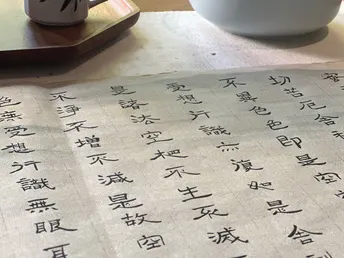 切苦厄舍
不異色色即是空
受想行識亦復如是舍
是諸法空相不生不滅
不淨不增不減是故空
色無受想行識無眼耳